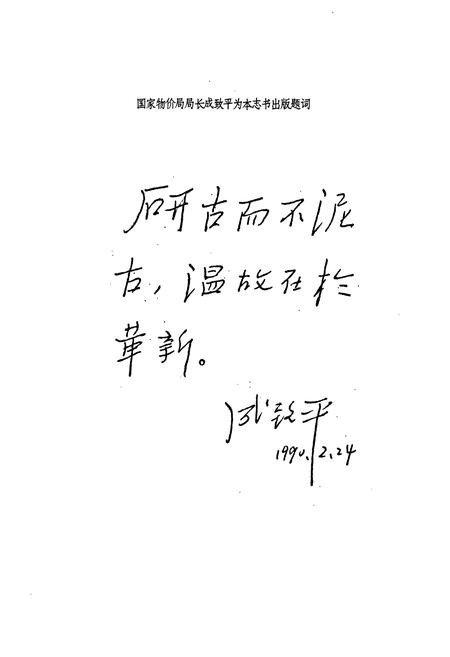 国家物价局局长成致平为本志书出版题词
研古而不泥
古，温故在於
革新。
成致平
1990.2.24